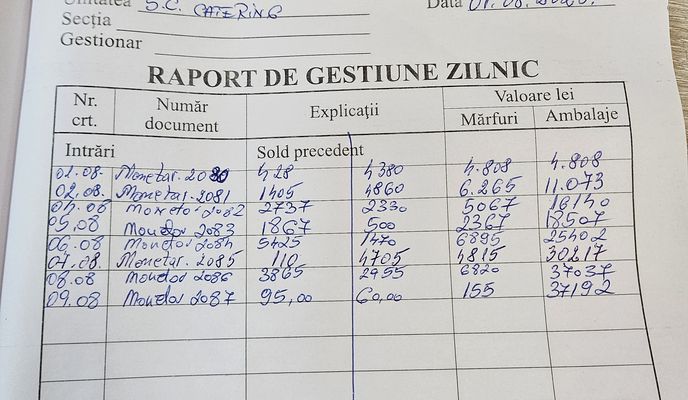 Unitatea S.C. CATERING Data 01.08.
Secția
Gestionar
RAPORT DE GESTIUNE ZILNIC
Nr. crt. Număr document Explicații Valoare lei
Mărfuri Ambalaje
Intrări Sold precedent
01.08. Monetar. 2080 428 4380 4.808 4.808
02.08. Monetar. 2081 1405 4860 6.265 11.073
04.08 Monetar 2082 2737 2330 5067 16140
05.08 Monetar 2083 1867 500 2367 18507
06.08 Monetar 2084 5425 1470 6895 25402
07.08. Monetar. 2085 110 4705 4815 30217
08.08 Monetar 2086 3865 2955 6820 37037
09.08 Monetar 2087 95,00 60,00 155 37192